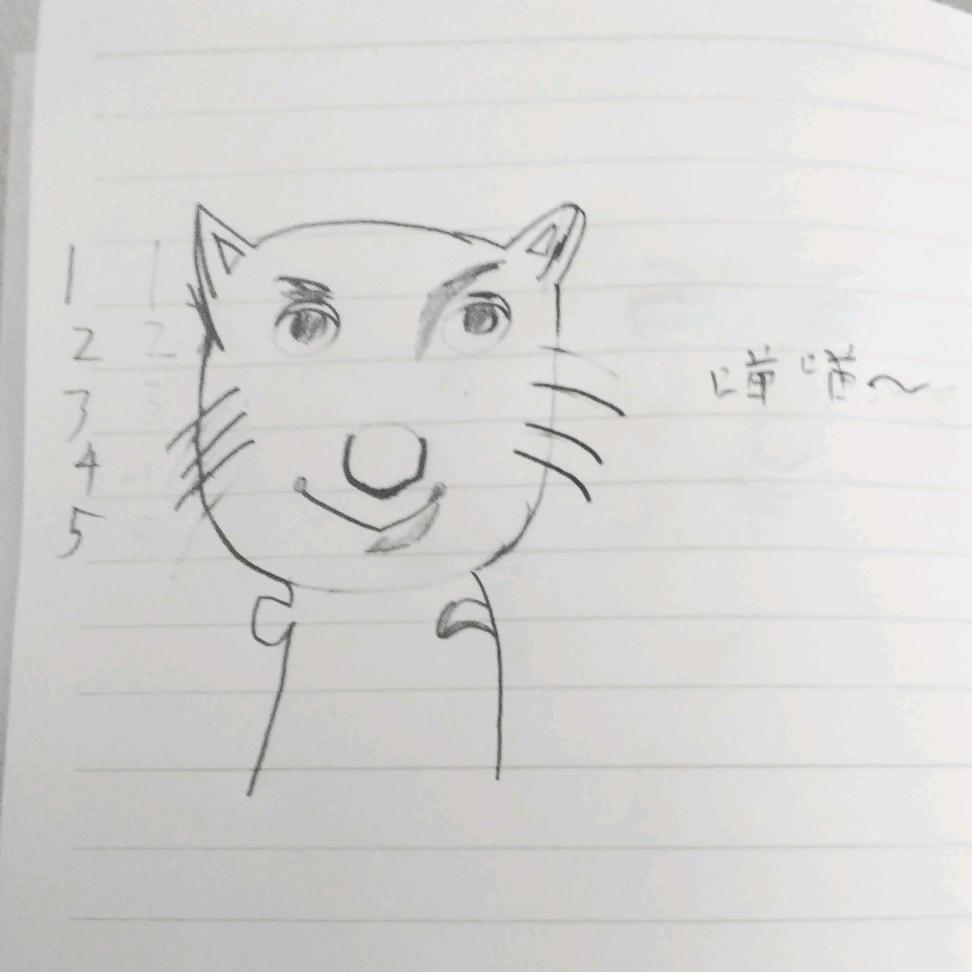 1 1
2 2
3 3
4
5
喵喵~